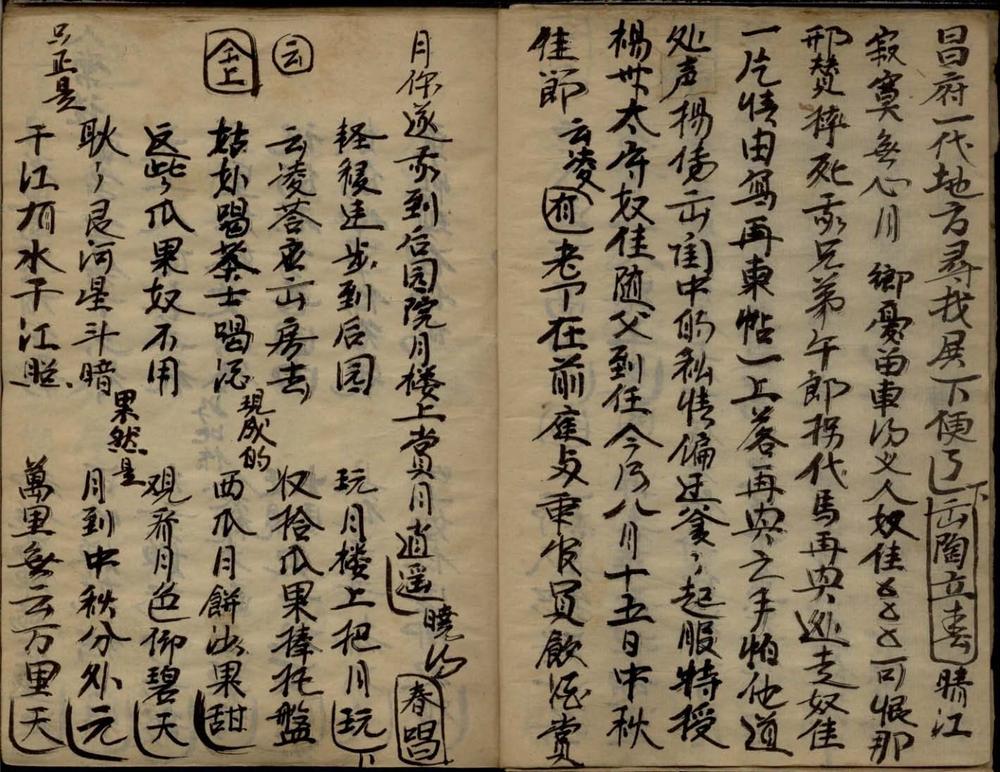 昌府一代地方尋找展下便了 下 云陶立春 晴江
寂寞無心月 鄉憂曲車沕义人奴佳云云云可恨那
邢贊摔死永兄弟午郎拐代馬再興逃走奴佳
一片情由寫再東帖一上落再興之手怕他道
处声揚傳云闺中的私情偏迁爹々起服特授
楊州太守奴佳随父到任今乃八月十五日中秋
佳節 云凌 有 老下在前庭与衆官員飲酒賞
月你遂永到后园院月楼上賞月逍遥 曉沕 春唱
輕移连步到后园 玩月楼上把月玩
云 云凌荅应云房去 收拾瓜果捧托盤
全上 姑娘喝茶士喝酒 現成的 西瓜月餅沙果甜
这些々瓜果奴不用 观看月色仰碧天
耿々艮河星斗暗 果然是 月到中秋分外元
只正是 千江有水千江照 萬里無云万里天